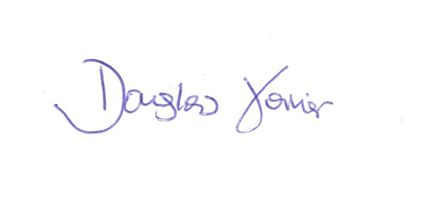 Douglas Xavier